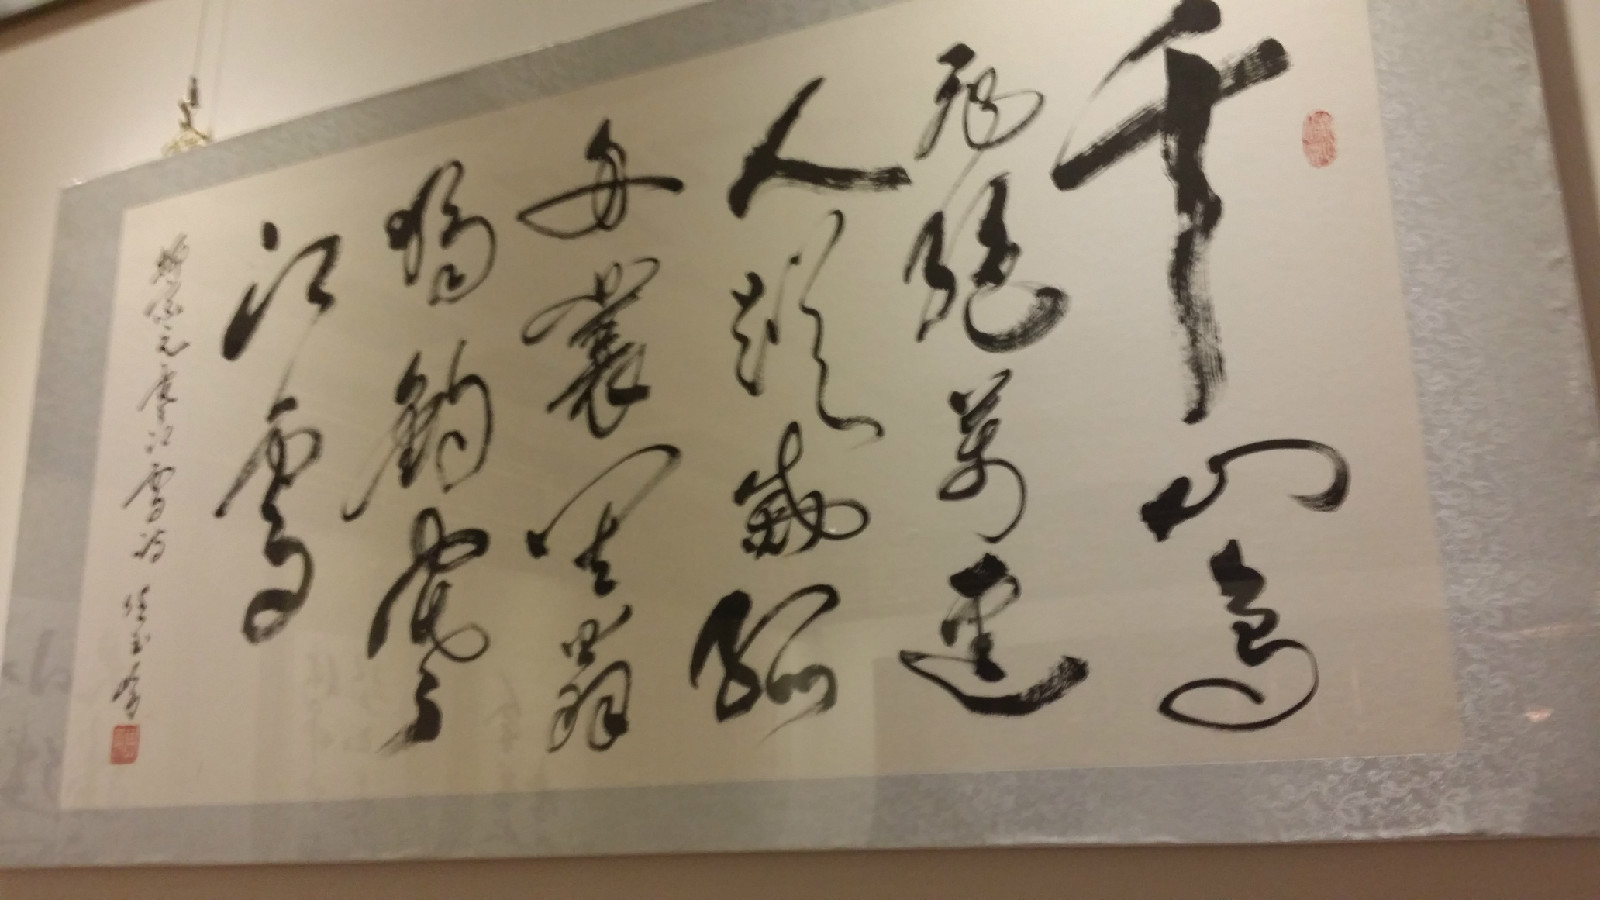 千山鳥
飛絕萬逕
人蹤滅孤
舟蓑笠翁
獨釣寒
江雪
柳宗元寒江雪詩